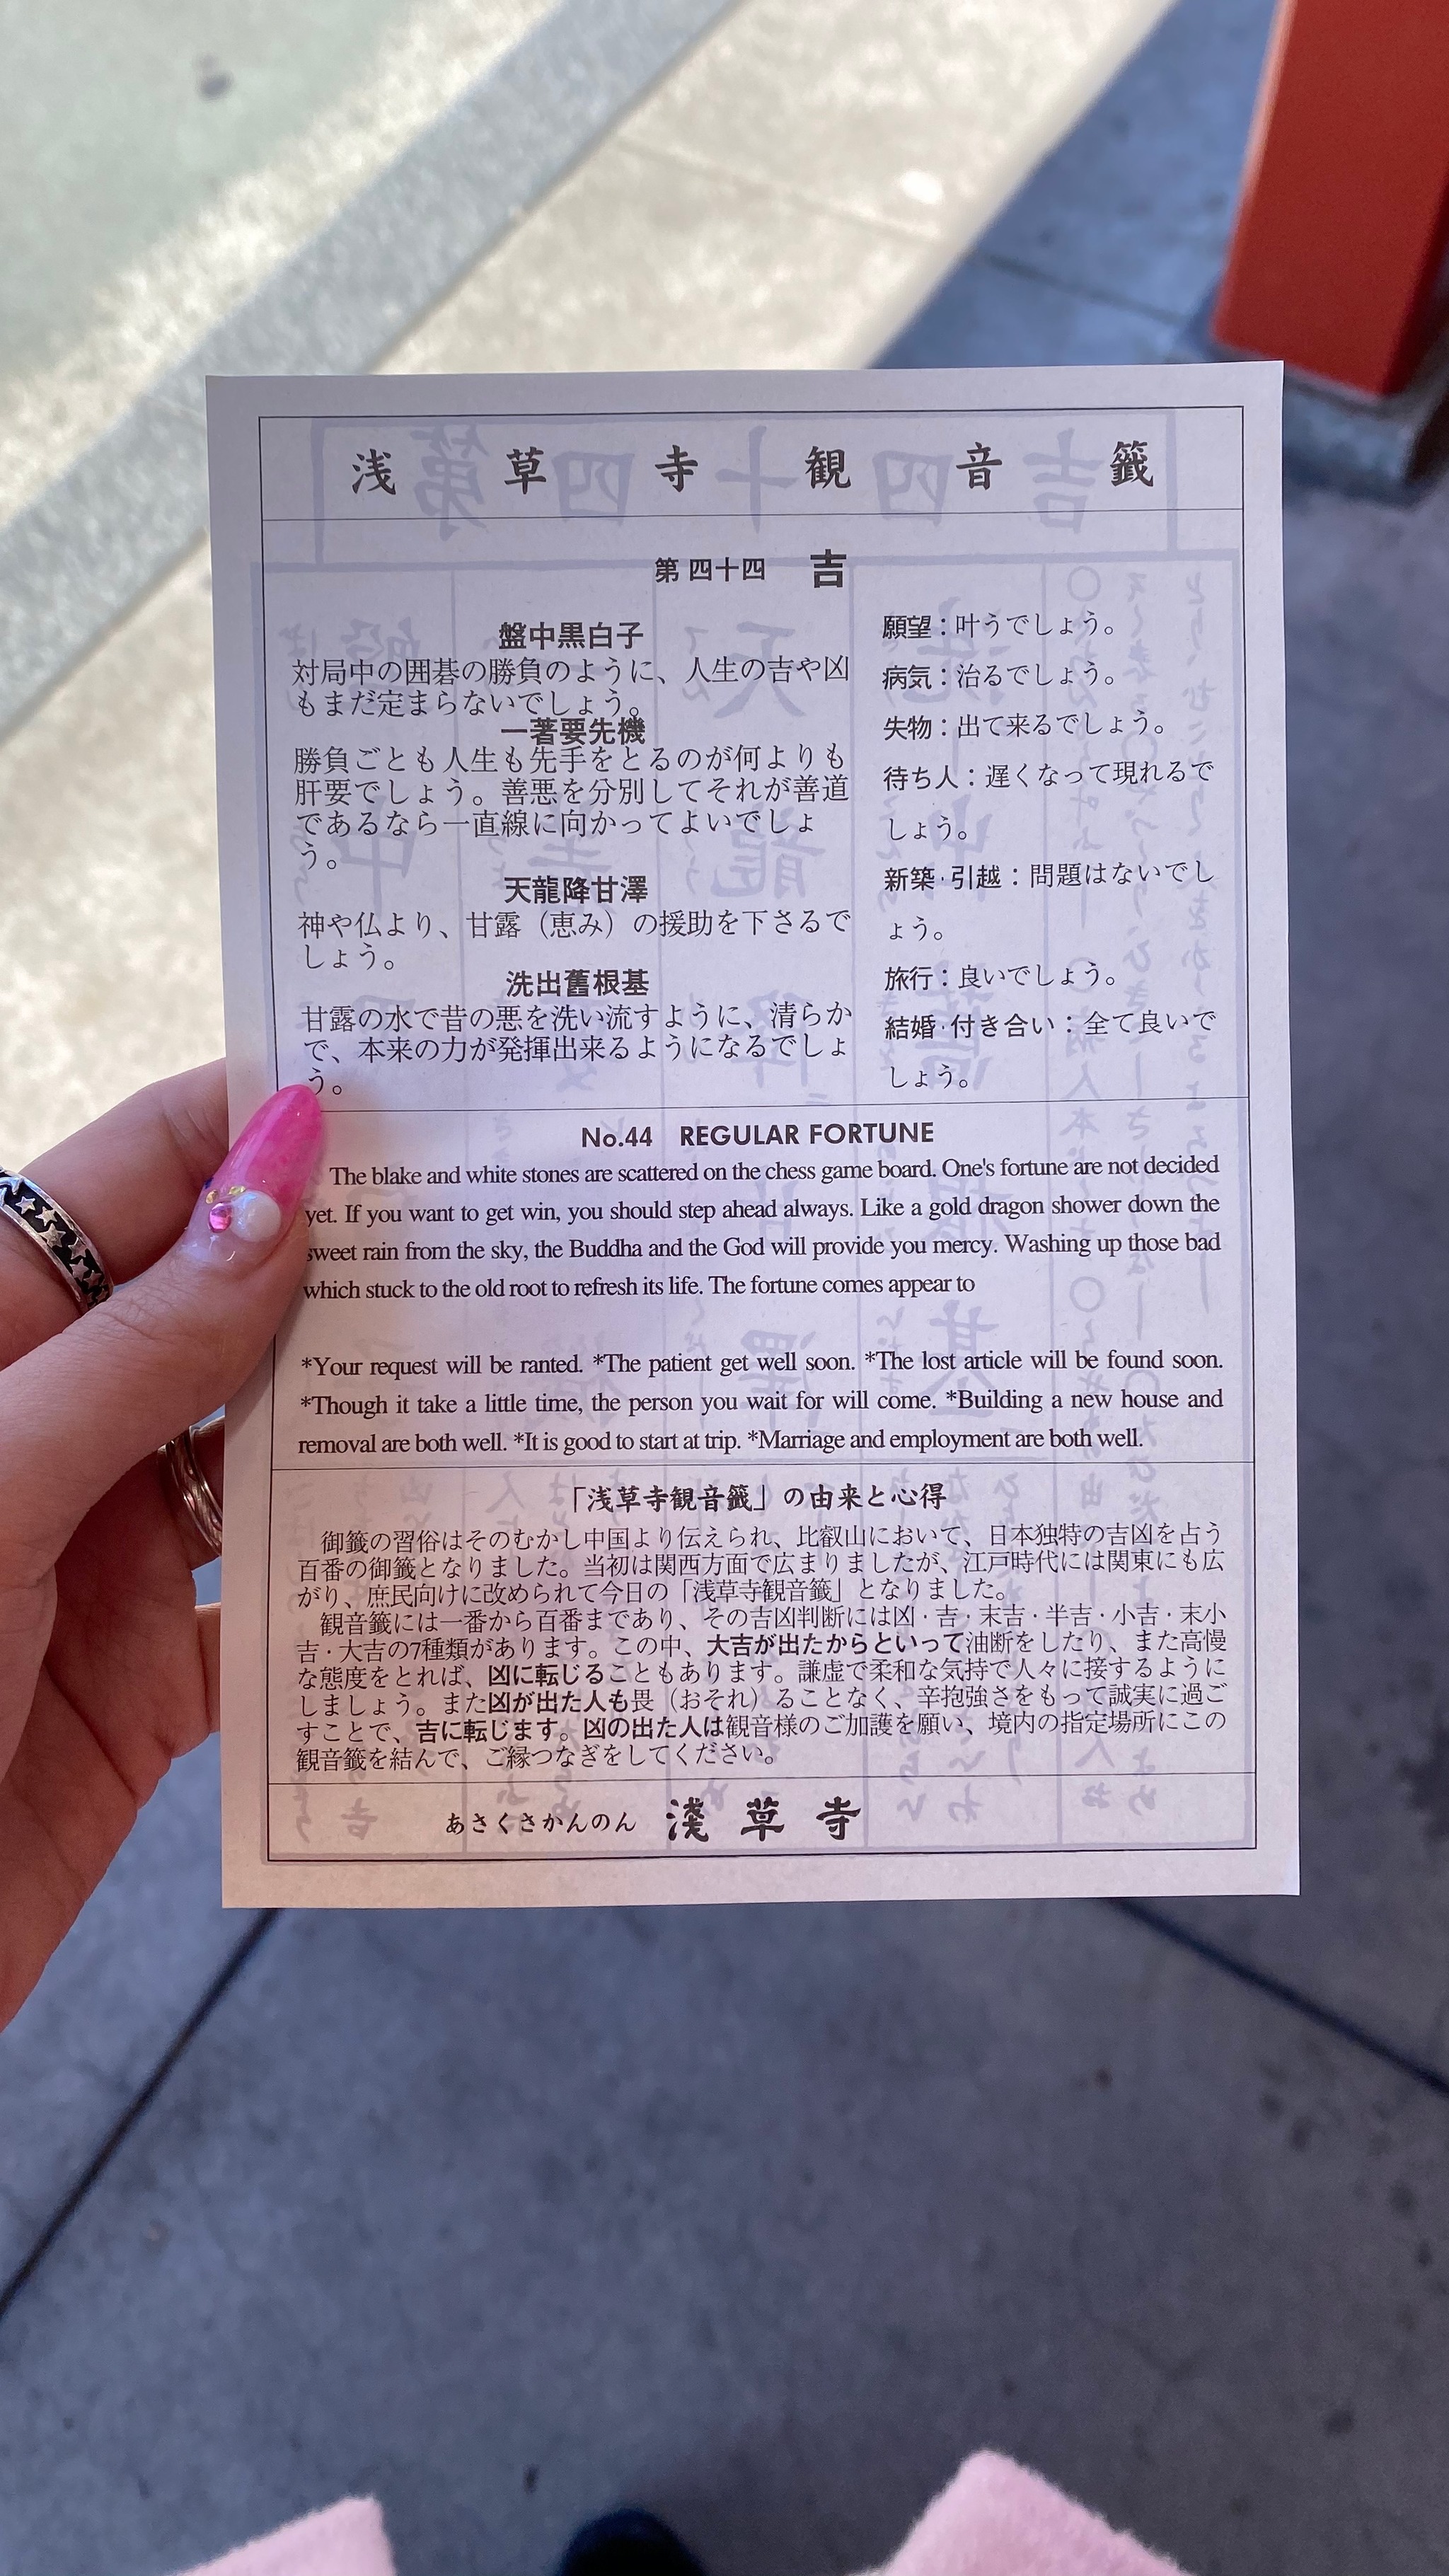 浅草寺観音籤
第四十四 吉
盤中黒白子
対局中の囲碁の勝負のように、人生の吉や凶
もまだ定まらないでしょう。
一著要先機
勝負ごとも人生も先手をとるのが何よりも
肝要でしょう。善悪を分別してそれが善道
であるなら一直線に向かってよいでしょ
う。
天龍降甘澤
神や仏より、甘露（恵み）の援助を下さるで
しょう。
洗出舊根基
甘露の水で昔の悪を洗い流すように、清らか
で、本来の力が発揮出来るようになるでしょ
う。
願望：叶うでしょう。
病気：治るでしょう。
失物：出て来るでしょう。
待ち人：遅くなって現れるで
しょう。
新築·引越：問題はないでし
ょう。
旅行：良いでしょう。
結婚·付き合い：全て良いで
しょう。
No.44 REGULAR FORTUNE
The blake and white stones are scattered on the chess game board. One's fortune are not decided
yet. If you want to get win, you should step ahead always. Like a gold dragon shower down the
sweet rain from the sky, the Buddha and the God will provide you mercy. Washing up those bad
which stuck to the old root to refresh its life. The fortune comes appear to
*Your request will be ranted. *The patient get well soon. *The lost article will be found soon.
*Though it take a little time, the person you wait for will come. *Building a new house and
removal are both well. *It is good to start at trip. *Marriage and employment are both well.
「浅草寺観音籤」の由来と心得
御籤の習俗はそのむかし中国より伝えられ、比叡山において、日本独特の吉凶を占う
百番の御籤となりました。当初は関西方面で広まりましたが、江戸時代には関東にも広
がり、庶民向けに改められて今日の「浅草寺観音籤」となりました。
観音籤には一番から百番まであり、その吉凶判断には凶·吉·末吉·半吉·小吉·末小
吉·大吉の7種類があります。この中、大吉が出たからといって油断をしたり、また高慢
な態度をとれば、凶に転じることもあります。謙虚で柔和な気持で人々に接するように
しましょう。また凶が出た人も畏（おそれ）ることなく、辛抱強さをもって誠実に過ご
すことで、吉に転じます。凶の出た人は観音様のご加護を願い、境内の指定場所にこの
観音籤を結んで、ご縁つなぎをしてください。
あさくさかんのん 淺草寺